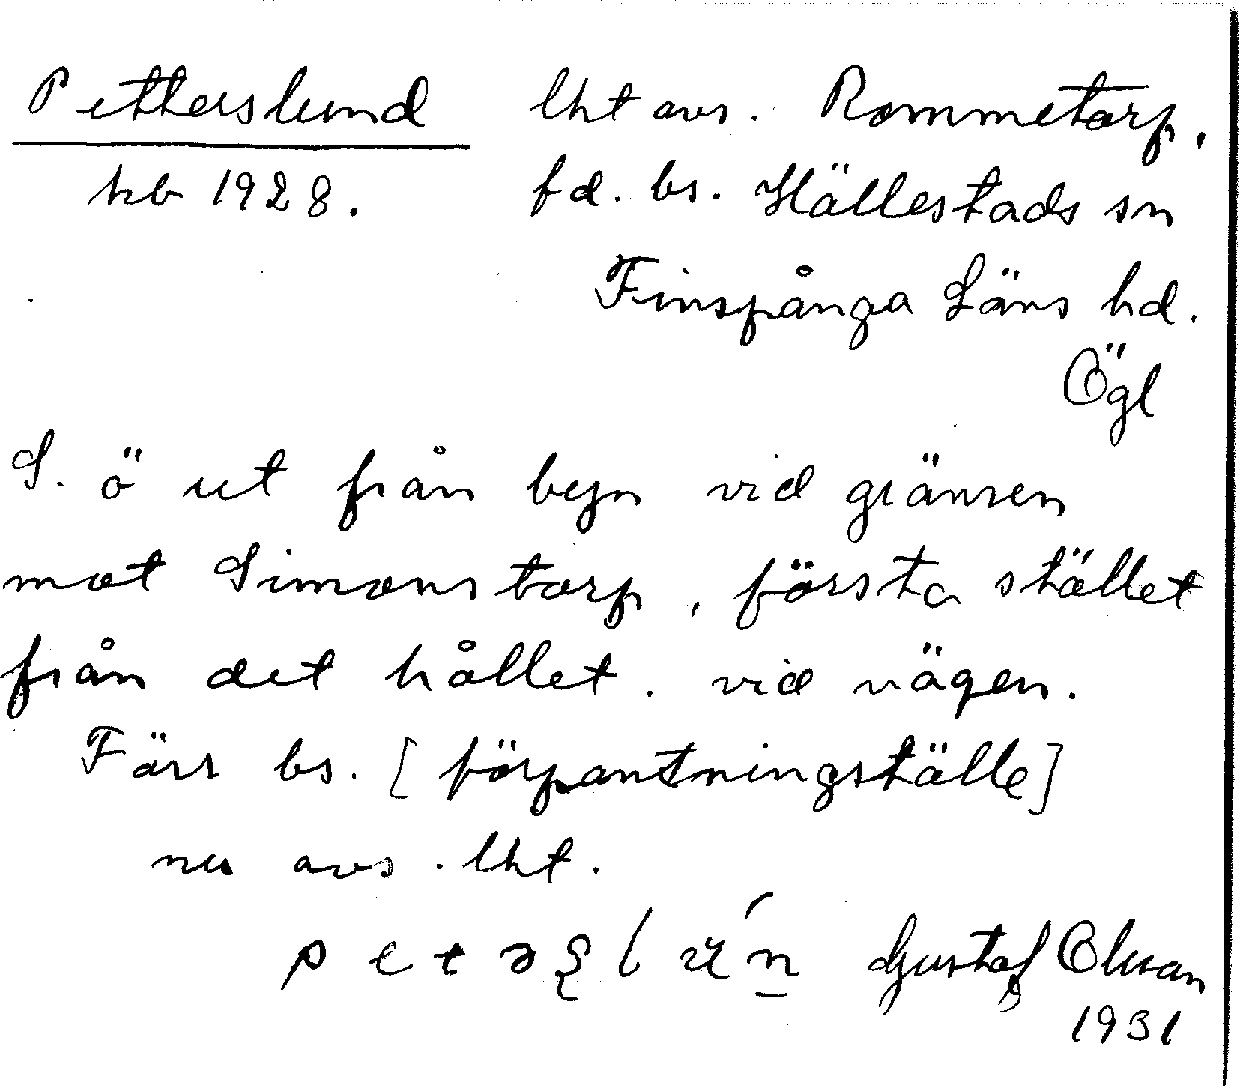 Petterslund lht avs. Rommetorp,
kb 1928. fd. bs. Hällestads sn
Finspånga Läns hd.
Ögl
S. ö ut från byn vid gränsen
mot Simonstorp, första stället
från det hållet. vid vägen.
Förr bs. [förpantningställe]
nu avs. lht.
Gustaf Olsson
1931